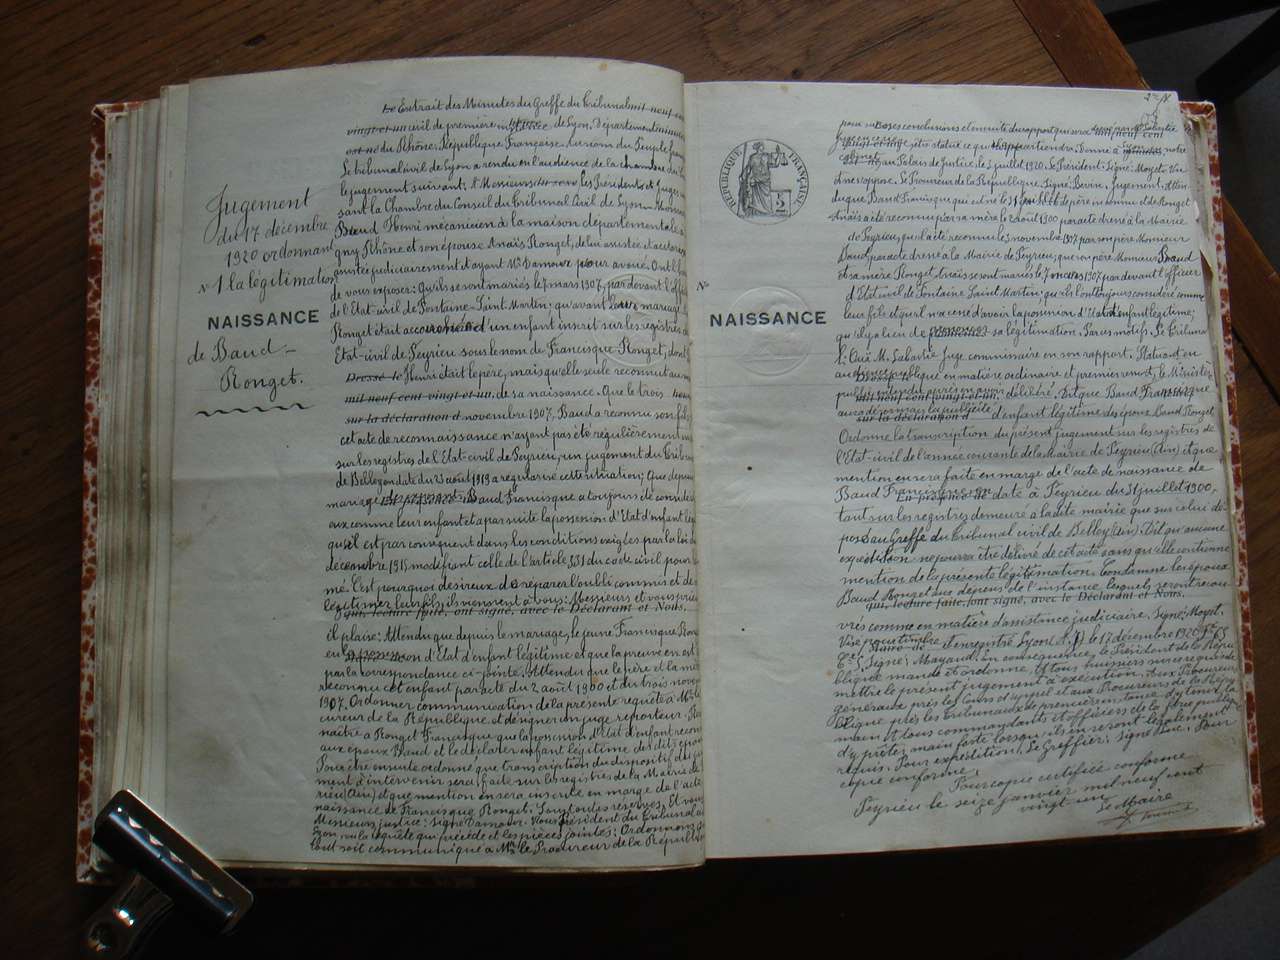 Jugement
du 17 décembre
1920 ordonnant
N° 1 la légitimation
NAISSANCE
de Baud-
Ronget.
Le Extrait des Minutes du Greffe du Tribunal mil neuf cen
vingt et un civil de première instance de Lyon, Département
du Rhône. République Française. Au nom du Peuple
Le tribunal civil de Lyon a rendu en l'audience de la chambre du
le jugement suivant: A Messieurs les Présidents et Juges
sant la Chambre du Conseil du Tribunal Civil de Lyon. Monsieur
Baud Henri mécanicien à la maison départementale
gny Rhône et son épouse Anaïs Ronget, de lui assistée et autorisée
assistée judiciairement et ayant Me Damour pour avoué. Ont l'h
de vous exposer: Qu'ils se sont mariés le 7 mars 1907, par devant l'offi
de l'Etat-civil de Fontaine-Saint-Martin; qu'avant leur mariage
Ronget était accouchée d'un enfant inscrit sur les registres d
Etat-civil de Peyrieu sous le nom de Francisque Ronget; dont
Dressé le Henri était le père, mais qu'elle seule reconnut au m
mil neuf cent vingt et un, de sa naissance. Que le trois
sur la déclaration d novembre 1907, Baud a reconnu son fils
cet acte de reconnaissance n'ayant pas été régulièrement
sur les registres de l'Etat-civil de Peyrieu, un jugement du tribu
de Belley en date du 23 août 1919 a régularisé cette situation; Que depuis
mariage Baud Francisque a toujours été considéré
eux comme leur enfant et a par suite la possession d'Etat d'enfant
qu'il est par conséquent dans les conditions exigées par la loi du
décembre 1915 modifiant celle de l'article 331 du code civil pour
mé. C'est pourquoi desireux de réparer l'oubli commis et de
légitimer leur fils, ils viennent à vous: Messieurs et vous prie
qui, lecture faite, ont signé, avec le Déclarant et Nous,
il plaise: Attendu que depuis le mariage, le jeune Francisque Ron
en possession d'Etat d'enfant légitime et que la preuve en est
par la correspondance ci-jointe. Attendu que le père et la mère
reconnu cet enfant par acte du 2 août 1900 et du trois novem
1907. Ordonner communication de la présente requête à Mr le
cureur de la République et désigner un juge reporteur.
naître à Ronget Francisque que la possession d'Etat d'enfant recon
aux époux Baud et le déclarer enfant légitime des dits époux
Pour être ensuite ordonné que transcription du dispositif du ju
ment à intervenir sera faite sur les registres de la Mairie de
rieu (Ain) et que mention en sera inscrite en marge de l'acte
naissance de Francisque Ronget. Sous toutes réserves, Et vous
Messieurs justice: Signé Damour. Nous Président du Tribunal d
Lyon, vu la requête qui précède et les pièces jointes: Ordonnons q
tout soit communiqué à Mr le Procureur de la Républi
RÉPUBLIQUE FRANÇAISE
2
N°
NAISSANCE
pour sur ses conclusions et ensuite du rapport qui sera
être statué ce qu'il appartiendra. Donné à Lyon en notre
au Palais de Justice, le 5 juillet 1920. Le Président: Signé: Moyet. Vu
et ne s'oppose. Le Procureur de la République Signé: Bevin. Jugement. Atten
du que Baud Francisque qui est né le 31 juillet de père inconnu et de Ronget
Anaïs a été reconnu par sa mère le 2 août 1900 par acte dressé à la Mairie
de Peyrieu; qu'il a été reconnu le 3 novembre 1907 par son père Monsieur
Baud par acte dressé à la Mairie de Peyrieu; que son père Monsieur Baud
et sa mère Ronget Anaïs se sont mariés le 7 mars 1907 par devant l'officier
d'Etat civil de Fontaine Saint Martin; qu'ils l'ont toujours considéré comme
leur fils et qu'il n'a cessé d'avoir la possession d'Etat d'enfant légitime;
qu'il y a lieu de prononcer sa légitimation. Par ces motifs. Le Tribunal
l: Ouï M. Labastie Juge commissaire en son rapport. Statuant en
audience publique en matière ordinaire et premier ressort, le Ministère
public entendu après en avoir délibéré. Dit que Baud Francisque
aura désormais la qualité d'enfant légitime des époux Baud Ronget
sur la déclaration d
Ordonne la transcription du présent jugement sur les registres de
l'Etat-civil de l'année courante de la Mairie de Peyrieu (Ain) et que
mention en sera faite en marge de l'acte de naissance de
Baud Francisque en
date à Peyrieu du 31 juillet 1900,
tant sur les registres demeuré à la dite mairie que sur celui dé-
posé au Greffe du Tribunal civil de Belley (Ain). Dit qu'aucune
expédition ne pourra être délivré de cet acte sans qu'elle contienne
mention de la présente légitimation. Condamne les époux
Baud Ronget aux dépens de l'instance lesquels seront recou
qui, lecture faite, ont signé, avec le Déclarant et Nous.
vrés comme en matière d'assistance judiciaire. Signé: Moyet.
Visé pour timbre et enregistré Lyon A. J. le 17 décembre 1920 F° 63
C° 5. Signé: Mayaud. En conséquence, le Président de la Répu
blique mande et ordonne: A tous huissiers sur ce requis de
mettre le présent jugement à exécution. Aux Procureurs
généraux près les Cours d'appel et aux Procureurs de la Répu
blique près les Tribunaux de première instance d'y tenir la
main et tous commandants et officiers de la force publique
d'y prêter main forte lorsqu'ils en seront légalement
requis. Pour expédition. Le Greffier: signé Pour
copie conforme.
Pour copie certifiée conforme
Peyrieu le seize janvier mil neuf cent
vingt un
Le Maire